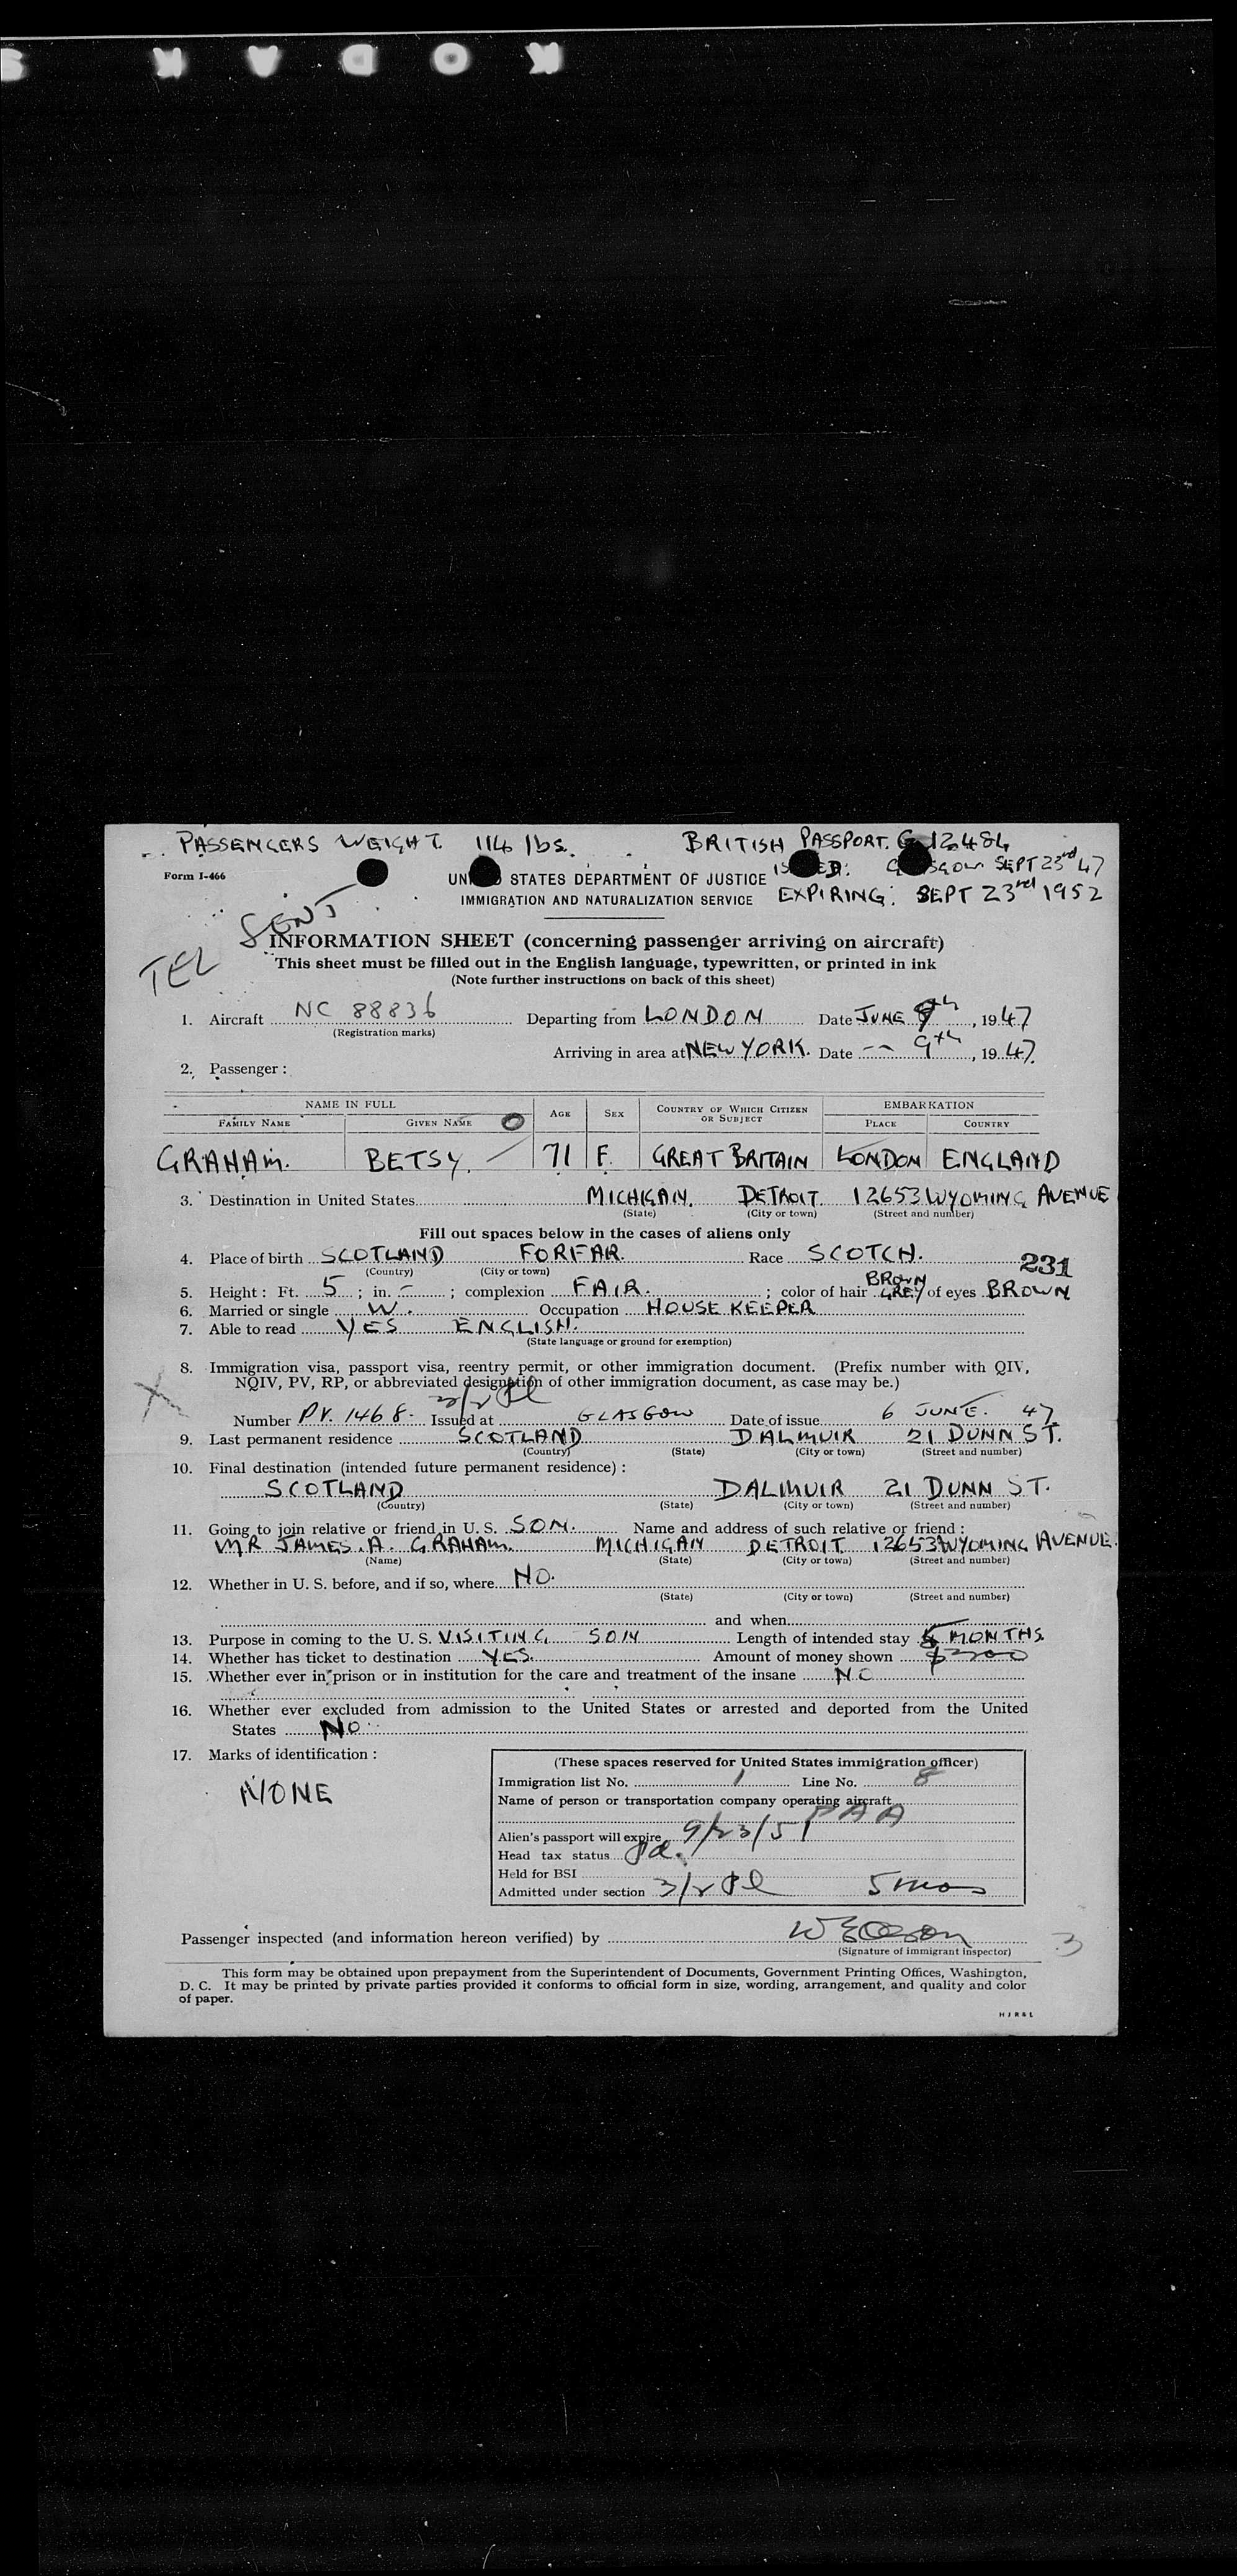 KODAK S
PASSENGERS WEIGHT. 114 lbs. BRITISH PASSPORT. G 12484
Form I-466 UNITED STATES DEPARTMENT OF JUSTICE ISSUED: GLASGOW SEPT 23rd 47
IMMIGRATION AND NATURALIZATION SERVICE EXPIRING: SEPT 23rd 1952
SENT
TEL
INFORMATION SHEET (concerning passenger arriving on aircraft)
This sheet must be filled out in the English language, typewritten, or printed in ink
(Note further instructions on back of this sheet)
1. Aircraft NC 88836 Departing from LONDON Date JUNE 9th, 1947
(Registration marks)
Arriving in area at NEW YORK. Date -- 9th, 1947.
2. Passenger:
NAME IN FULL AGE SEX COUNTRY OF WHICH CITIZEN OR SUBJECT EMBARKATION
FAMILY NAME GIVEN NAME PLACE COUNTRY
GRAHAM. BETSY. 71 F. GREAT BRITAIN LONDON ENGLAND
3. Destination in United States MICHIGAN. DETROIT. 12653 WYOMING AVENUE
(State) (City or town) (Street and number)
Fill out spaces below in the cases of aliens only
4. Place of birth SCOTLAND FORFAR. Race SCOTCH.
(Country) (City or town) 231
BROWN
5. Height: Ft. 5; in. -; complexion FAIR.; color of hair GREY of eyes BROWN
6. Married or single W. Occupation HOUSE KEEPER
7. Able to read YES ENGLISH.
(State language or ground for exemption)
8. Immigration visa, passport visa, reentry permit, or other immigration document. (Prefix number with QIV,
NQIV, PV, RP, or abbreviated designation of other immigration document, as case may be.)
3/2 Pl
X
Number PV. 1468. Issued at GLASGOW Date of issue 6 JUNE. 47.
9. Last permanent residence SCOTLAND DALMUIR 21 DUNN ST.
(Country) (State) (City or town) (Street and number)
10. Final destination (intended future permanent residence):
SCOTLAND DALMUIR 21 DUNN ST.
(Country) (State) (City or town) (Street and number)
11. Going to join relative or friend in U. S. SON. Name and address of such relative or friend:
MR JAMES. A. GRAHAM. MICHIGAN DETROIT 12653 WYOMING AVENUE.
(Name) (State) (City or town) (Street and number)
12. Whether in U. S. before, and if so, where NO.
(State) (City or town) (Street and number)
and when
13. Purpose in coming to the U. S. VISITING SON Length of intended stay 5 MONTHS.
14. Whether has ticket to destination YES. Amount of money shown $200
15. Whether ever in prison or in institution for the care and treatment of the insane NO
16. Whether ever excluded from admission to the United States or arrested and deported from the United
States NO
17. Marks of identification:
NONE
(These spaces reserved for United States immigration officer)
Immigration list No. 1 Line No. 8
Name of person or transportation company operating aircraft
PAA
Alien's passport will expire 9/23/51
Head tax status Pd.
Held for BSI
Admitted under section 3/2 Pl 5 mos
Passenger inspected (and information hereon verified) by
(Signature of immigrant inspector) 3
This form may be obtained upon prepayment from the Superintendent of Documents, Government Printing Offices, Washington,
D. C. It may be printed by private parties provided it conforms to official form in size, wording, arrangement, and quality and color
of paper.
H J R & L